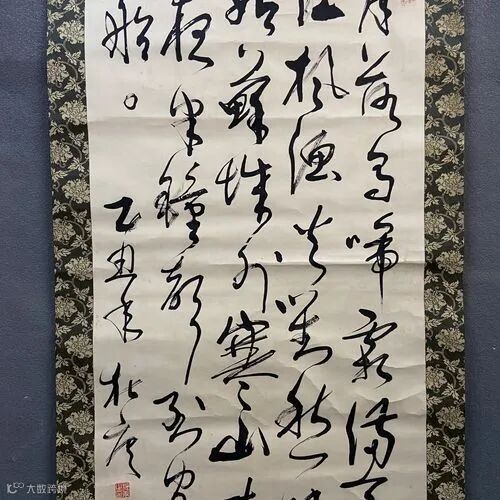 月落烏啼霜滿天
江楓漁火對愁眠
姑蘇城外寒山寺
夜半鐘聲到客
船。
乙丑年
大数跨境